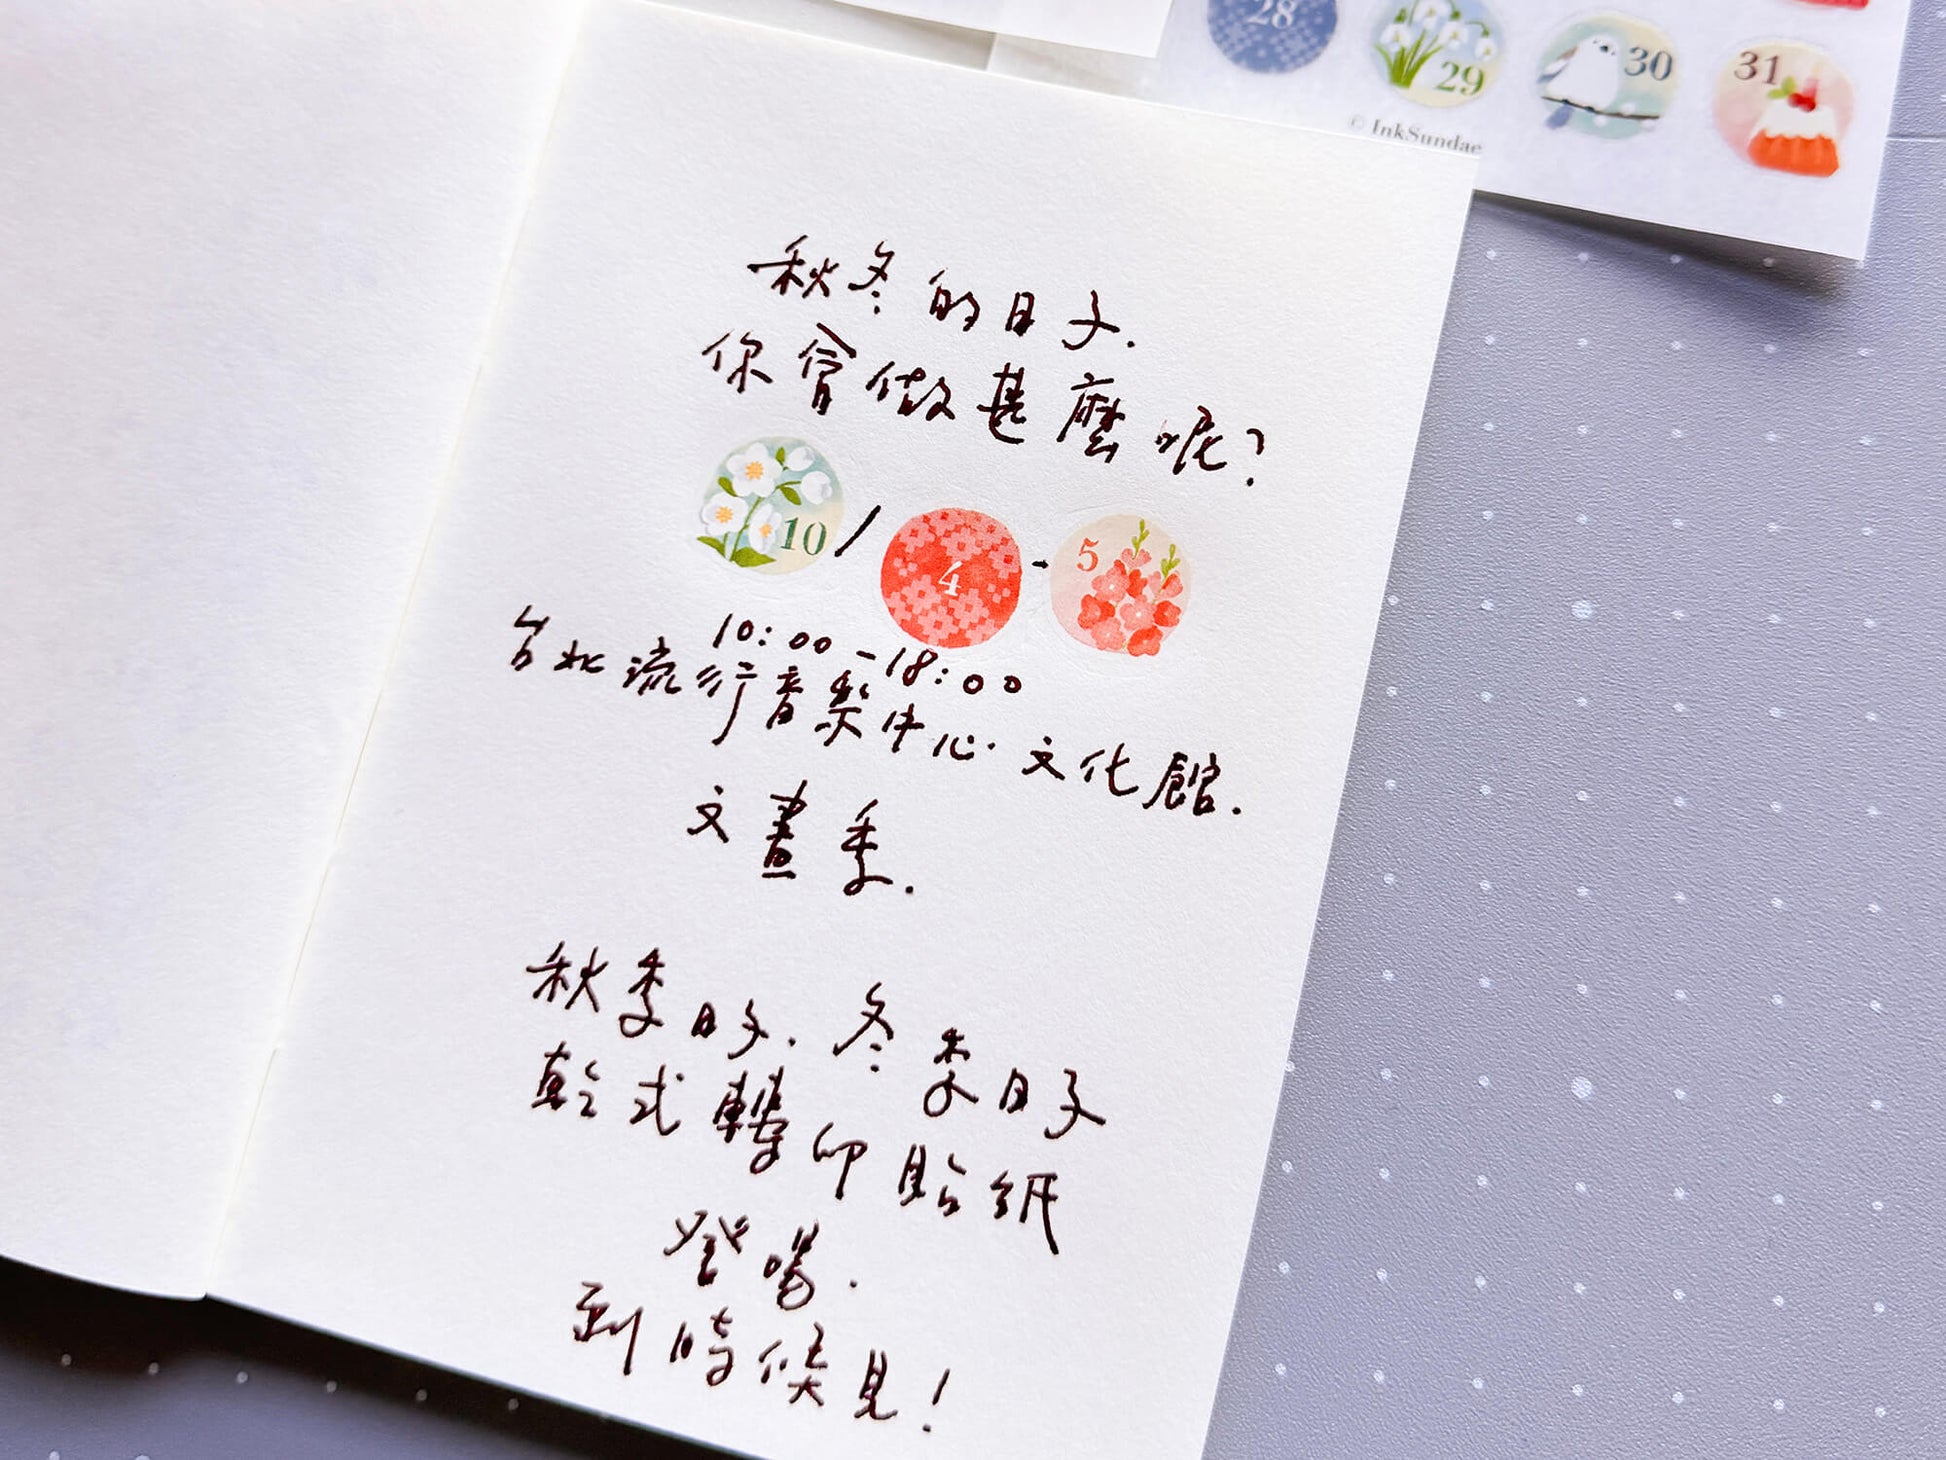 28
29
30
31
© InkSundae
秋冬的日子.
你會做甚麼呢?
10/4-5
10:00-18:00
台北流行音樂中心.文化館.
文畫季.
秋季日子.冬季日子
乾式轉印貼紙
登場.
到時候見!